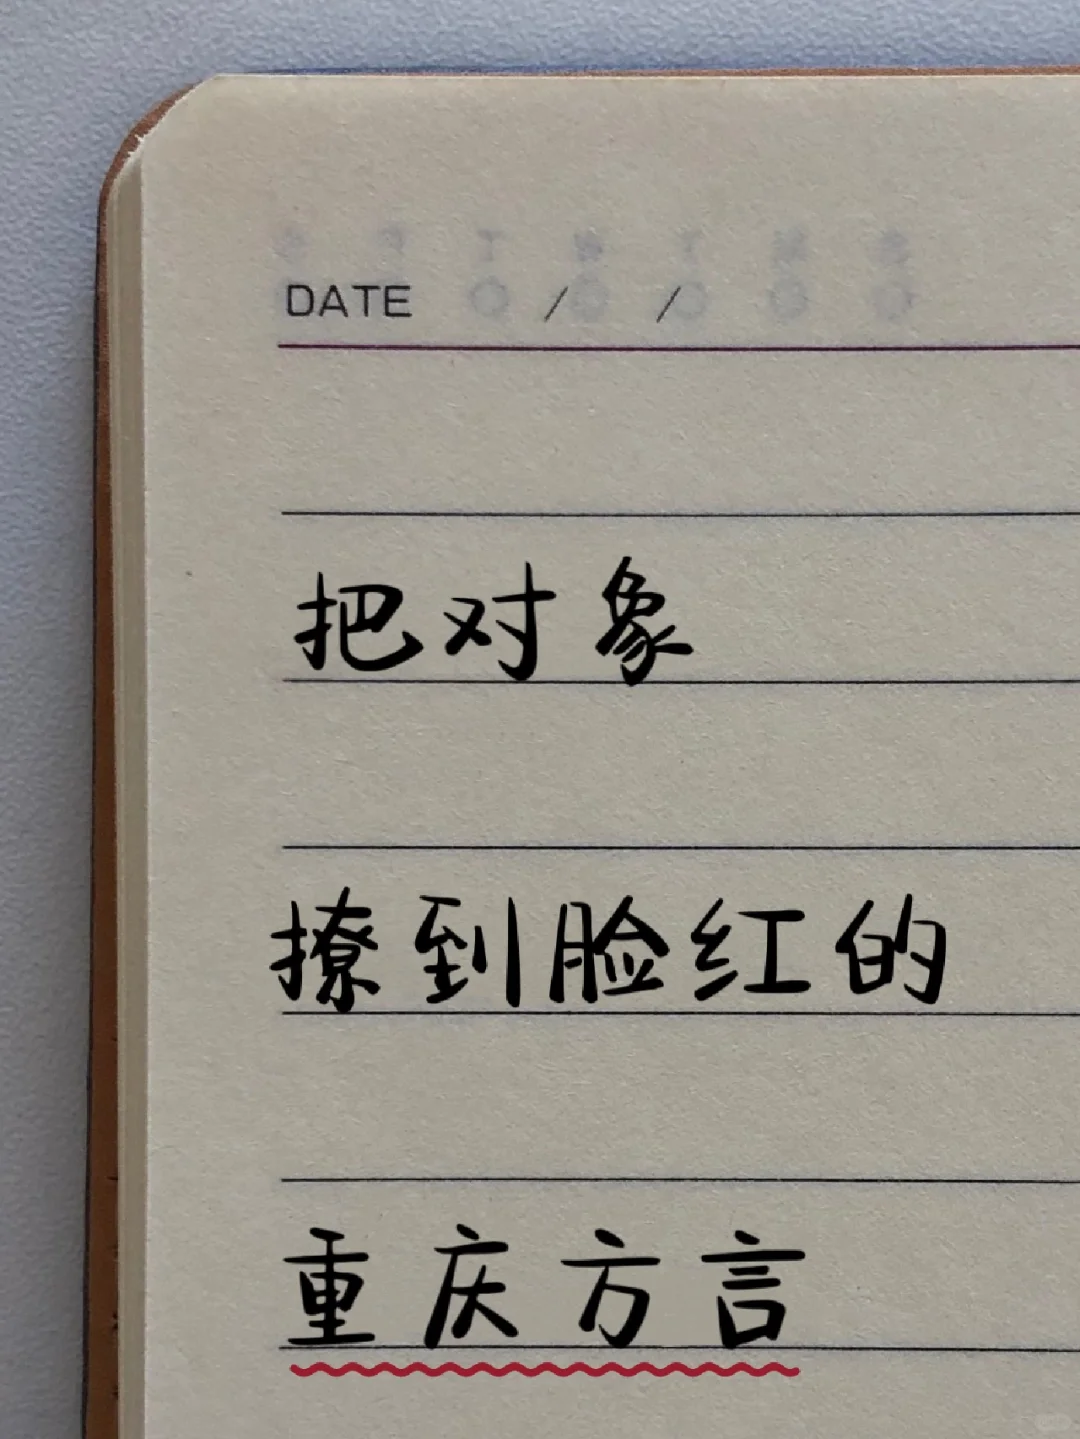 DATE / /
把对象
撩到脸红的
重庆方言